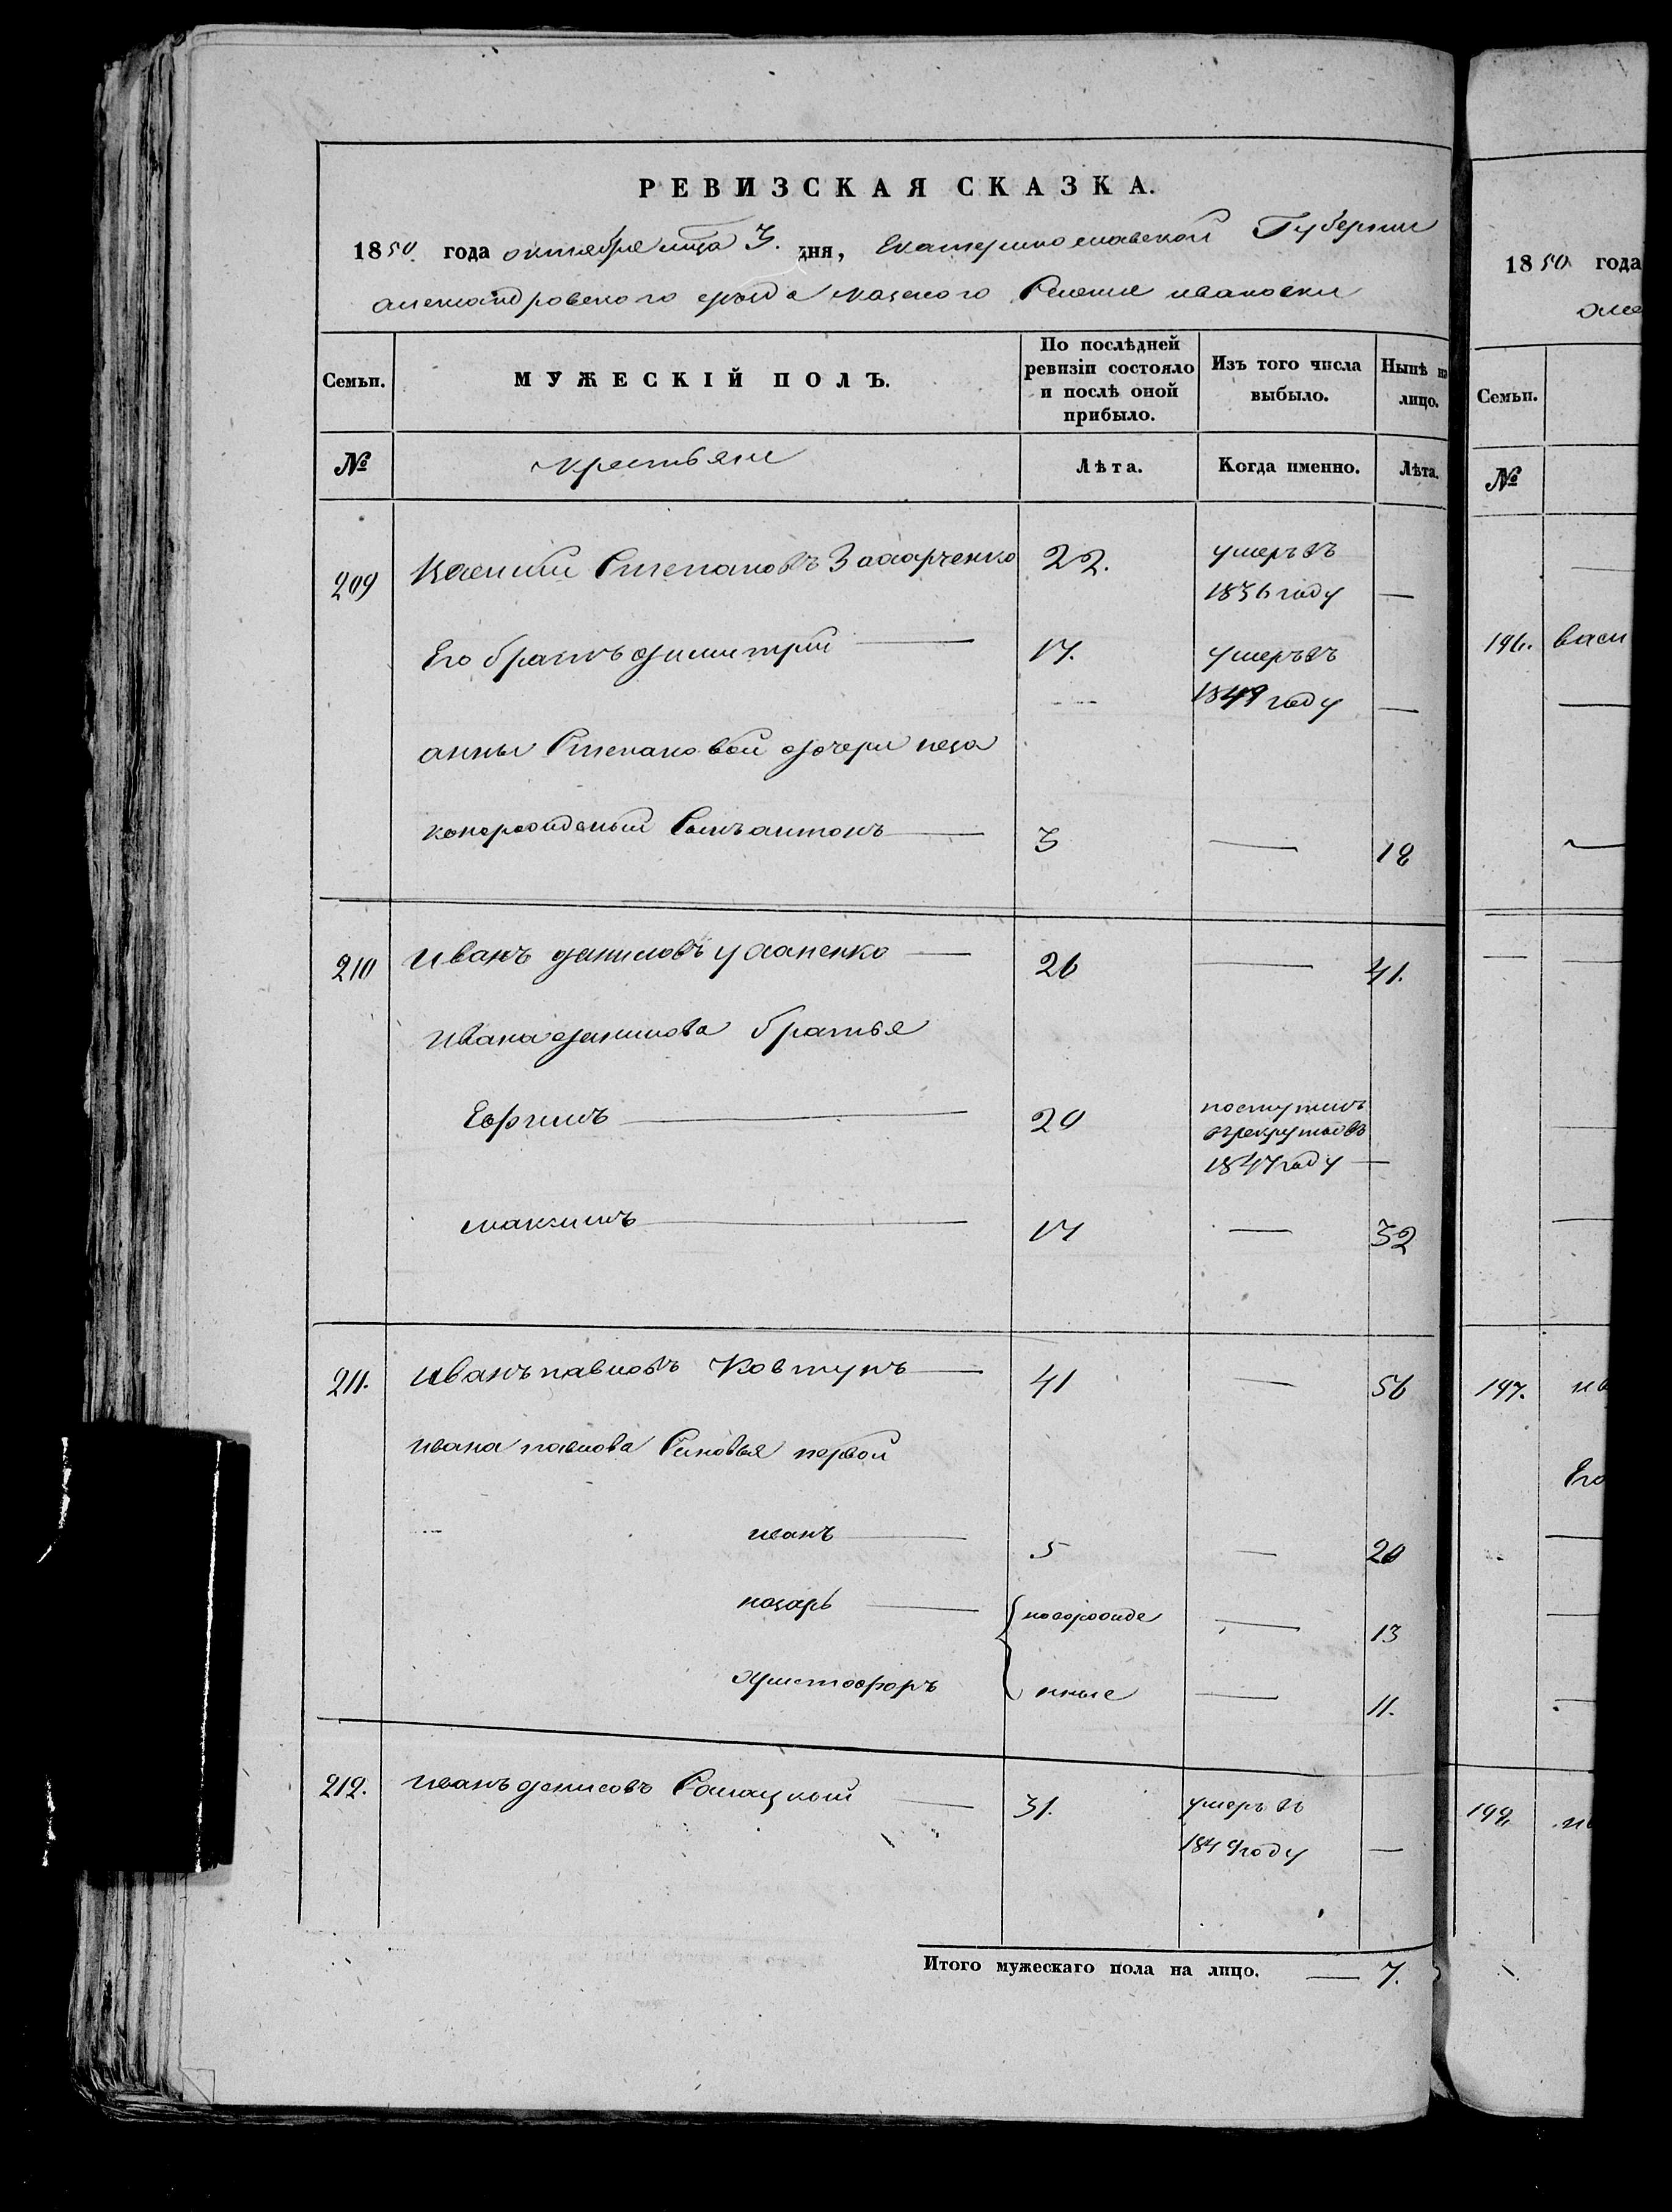 РЕВИЗСКАЯ СКАЗКА.
1850 года октября мца 3. дня, Екатеринославской Губернии
александровского уезда казеного Селения ивановки
Семьи.
МУЖЕСКІЙ ПОЛЪ.
По послѣдней
ревизіи состояло
и послѣ оной
прибыло.
Изъ того числа
выбыло.
Нынѣ на
лицо.
№
крестьяне
Лѣта.
Когда именно.
Лѣта.
209
Степановъ Захарченко 22. умеръ въ
1836 году —
Его братъ димитрий — 17. умеръ въ
1849 году —
анны Степановой дочери неза
конорожденый Сынъ антонъ — 3 — 18
210 Иванъ даниловъ — 26 — 41.
Ивана данилова братья
Ефримъ — 20 поступилъ
врекруты въ
1847 году —
максимъ — 17 — 32
211. иванъ павловъ Ковтунъ — 41 — 56
ивана павлова Сыновья первой
иванъ — 5 — 20
назарь — новорожде — 13
христофоръ нные — 11.
212. иванъ денисовъ — 31. умеръ въ
1849 году —
Итого мужескаго пола на лицо. — 7.
1850 года
Семьи.
№
196. васи
197. ив
Его
198 ив